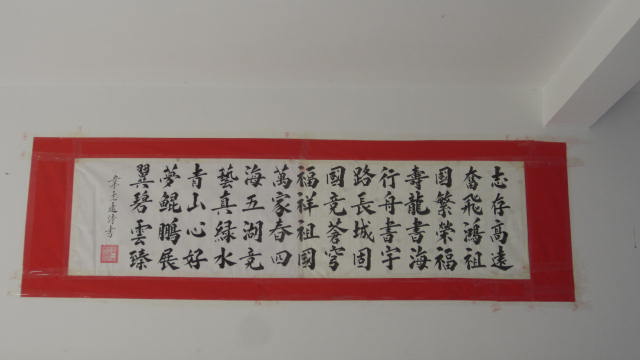 志存高遠
奮飛鴻祖
國繁榮福
壽龍書海
行舟書宇
路長城固
國競蒼穹
福祥祖國
萬家春四
海五湖竞
藝真緑水
青山心好
夢鲲鵬展
翼碧雲臻